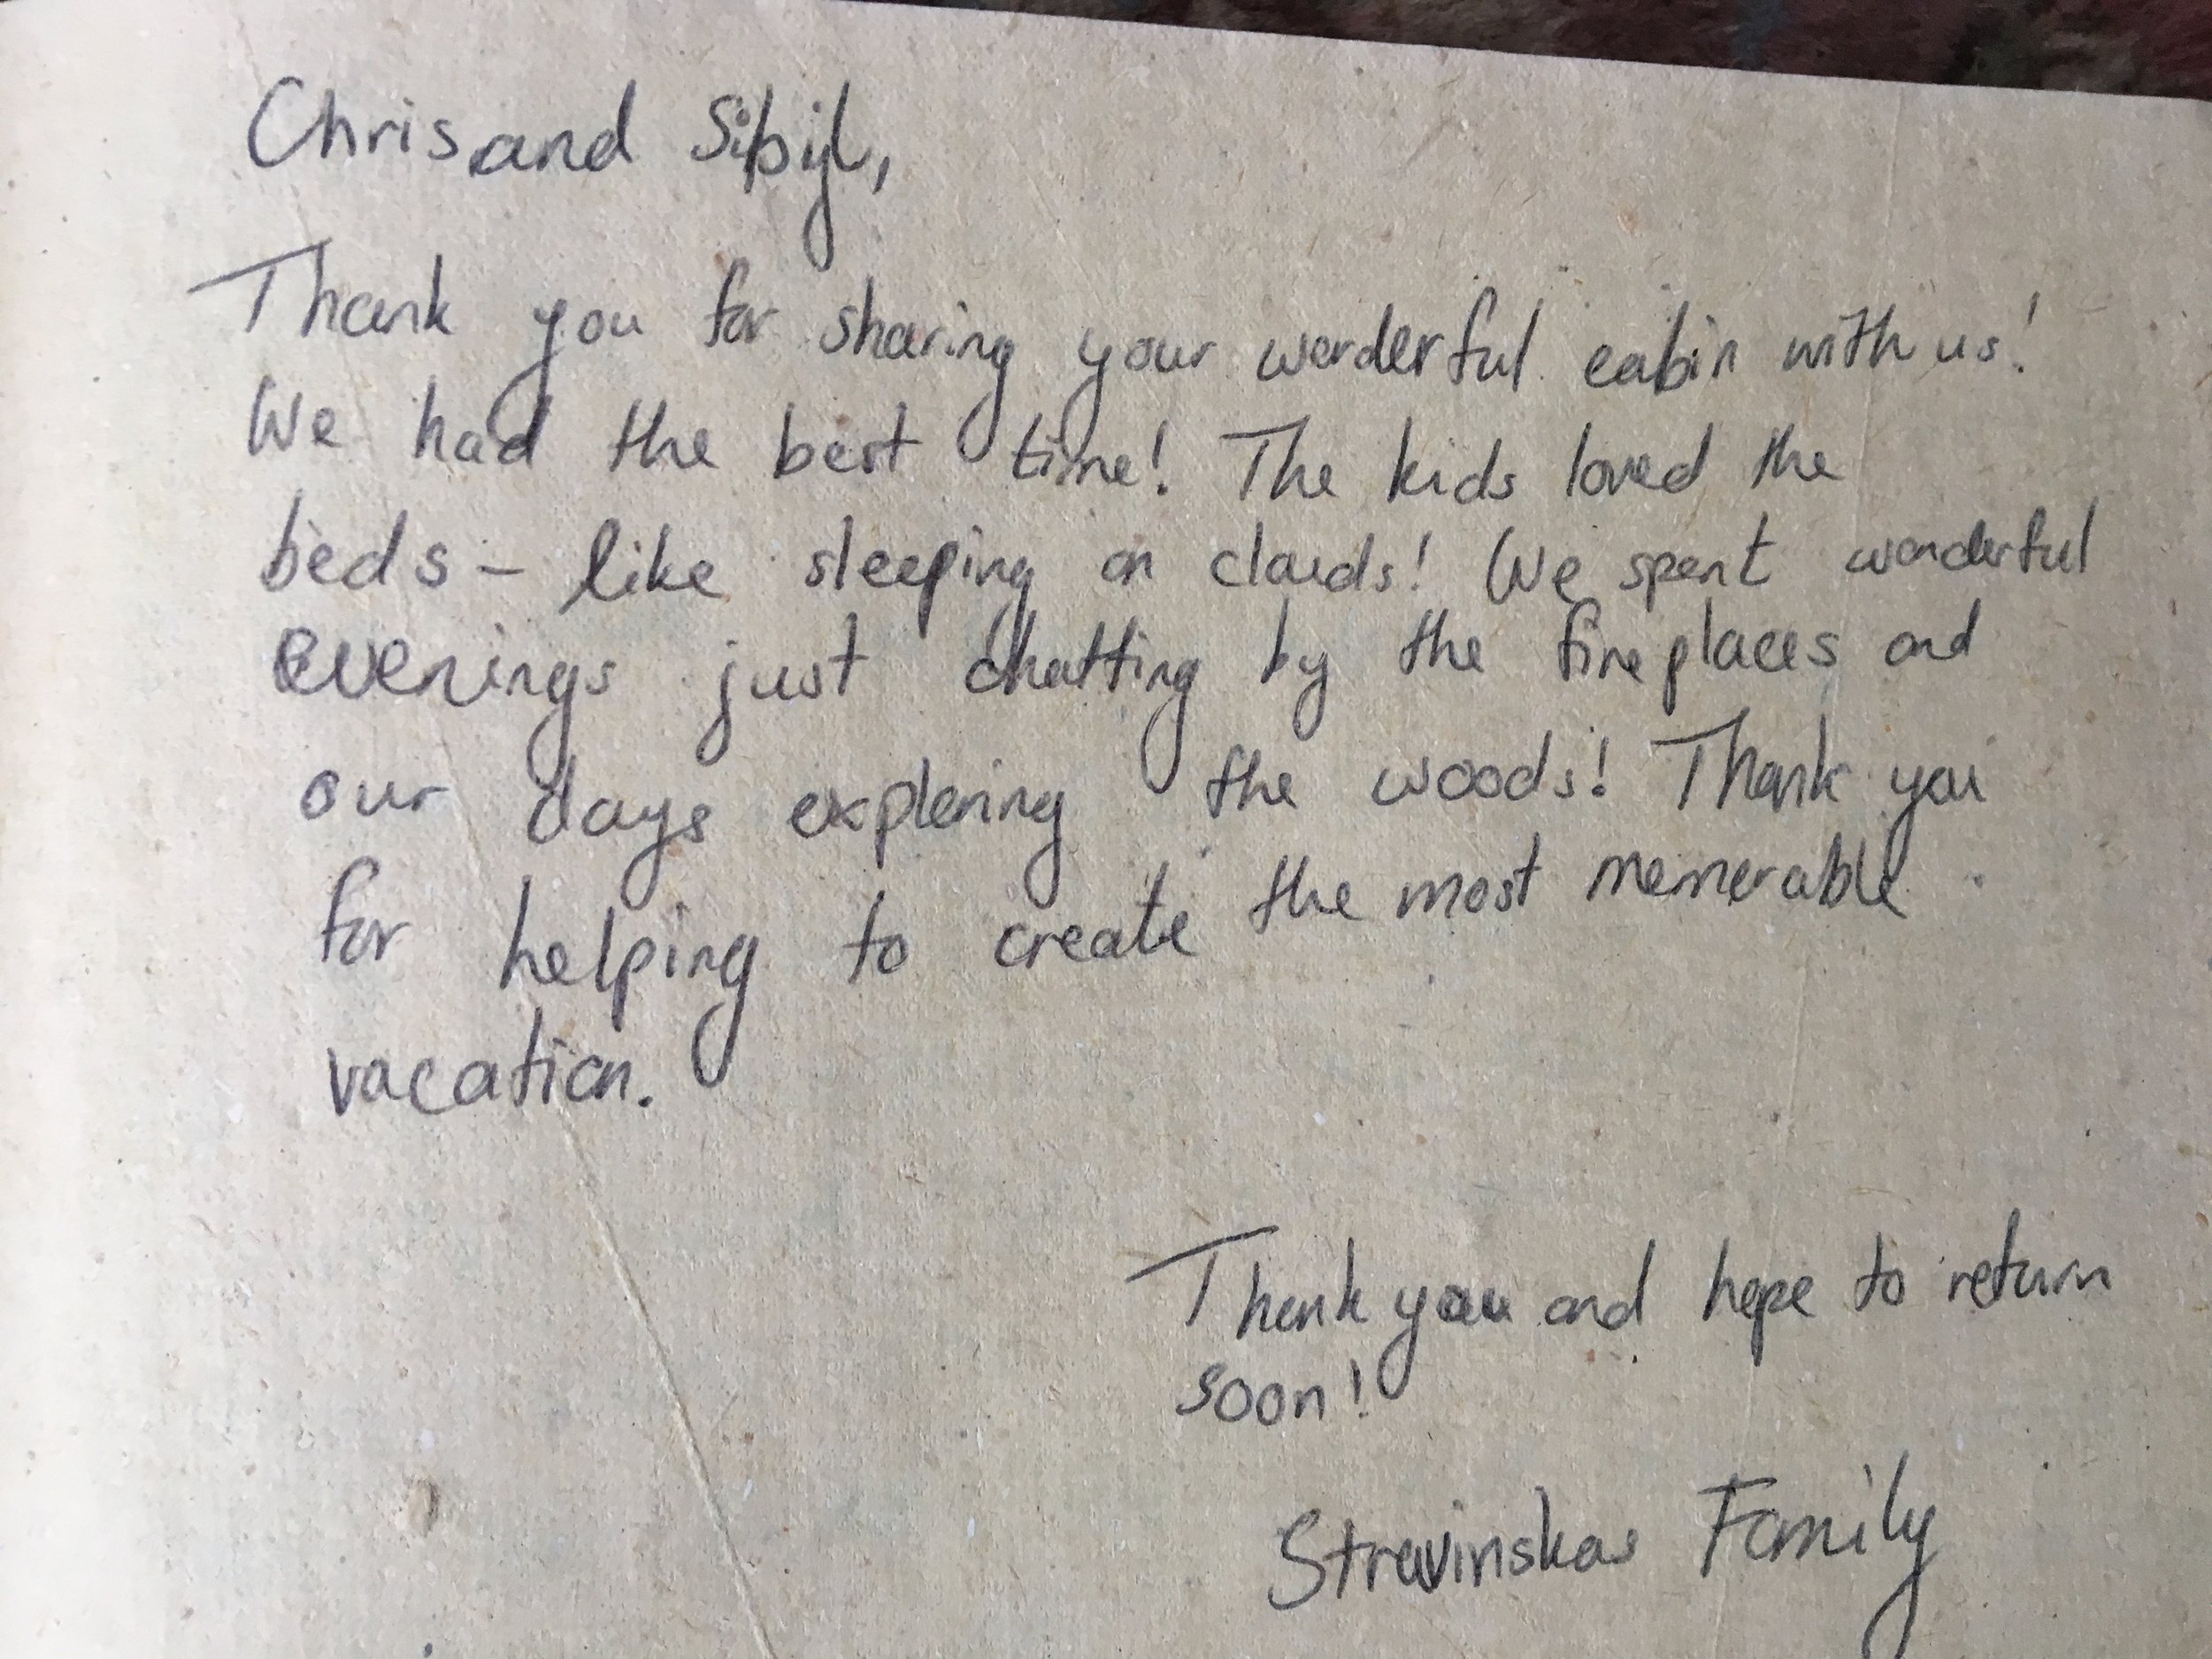 Chris and Sibyl,
Thank you for sharing your wonderful cabin with us!
We had the best time! The kids loved the
beds - like sleeping on clouds! We spent wonderful
evenings just chatting by the fireplaces and
our days exploring the woods! Thank you
for helping to create the most memorable
vacation.
Thank you and hope to return
soon!
Stravinskas Family